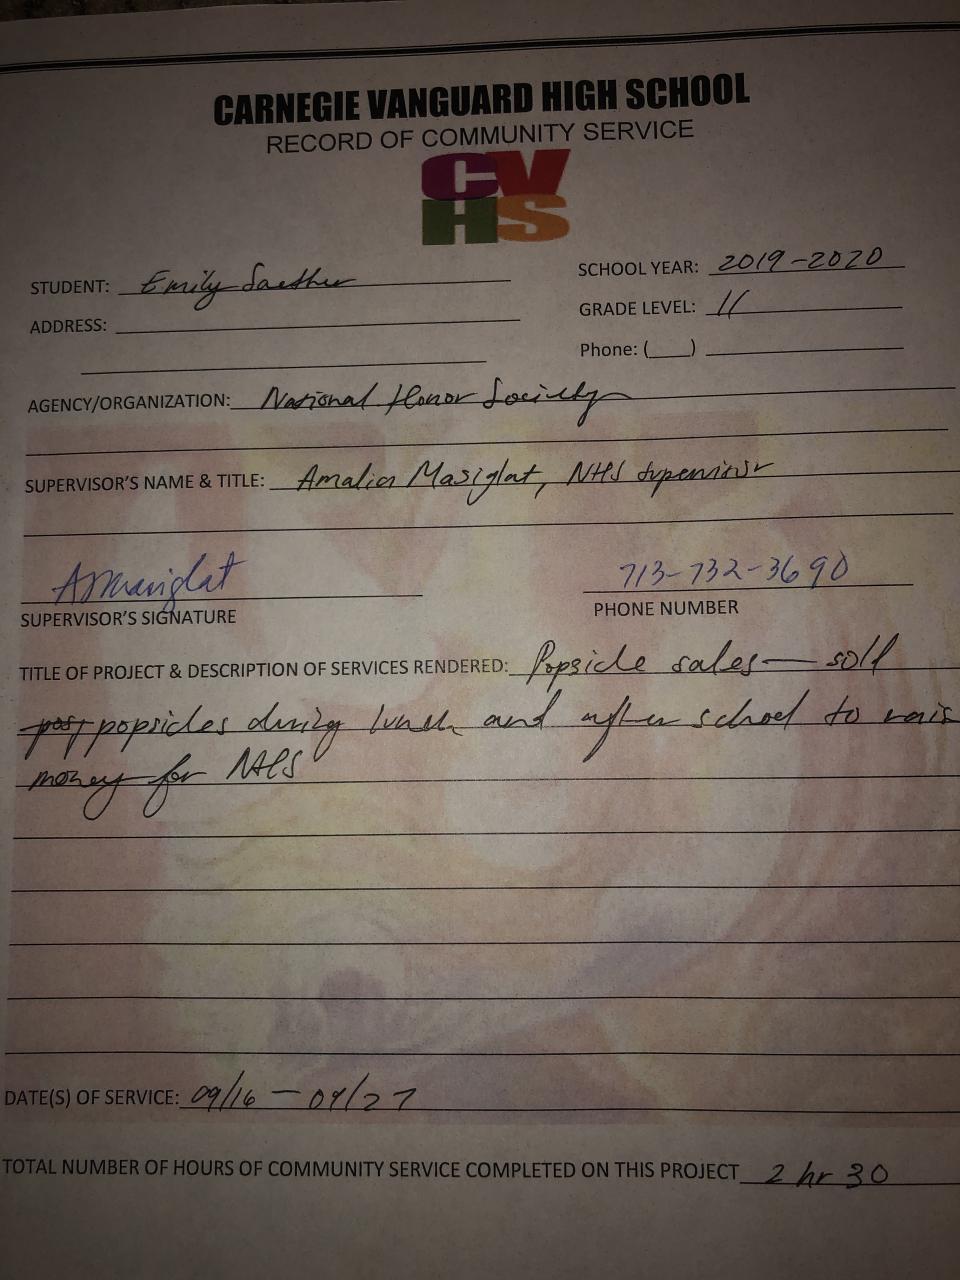 CARNEGIE VANGUARD HIGH SCHOOL
RECORD OF COMMUNITY SERVICE
CV
HS
STUDENT: Emily Saether
SCHOOL YEAR: 2019-2020
ADDRESS:
GRADE LEVEL: 11
Phone: (___)
AGENCY/ORGANIZATION: National Honor Society
SUPERVISOR'S NAME & TITLE: Amalia Masiglat, NHS supervisor
AJMasiglat 713-732-3690
SUPERVISOR'S SIGNATURE PHONE NUMBER
TITLE OF PROJECT & DESCRIPTION OF SERVICES RENDERED: Popsicle sales — sold
popsicles during lunch and after school to rais
money for NHS
DATE(S) OF SERVICE: 09/16 — 09/27
TOTAL NUMBER OF HOURS OF COMMUNITY SERVICE COMPLETED ON THIS PROJECT 2 hr 30